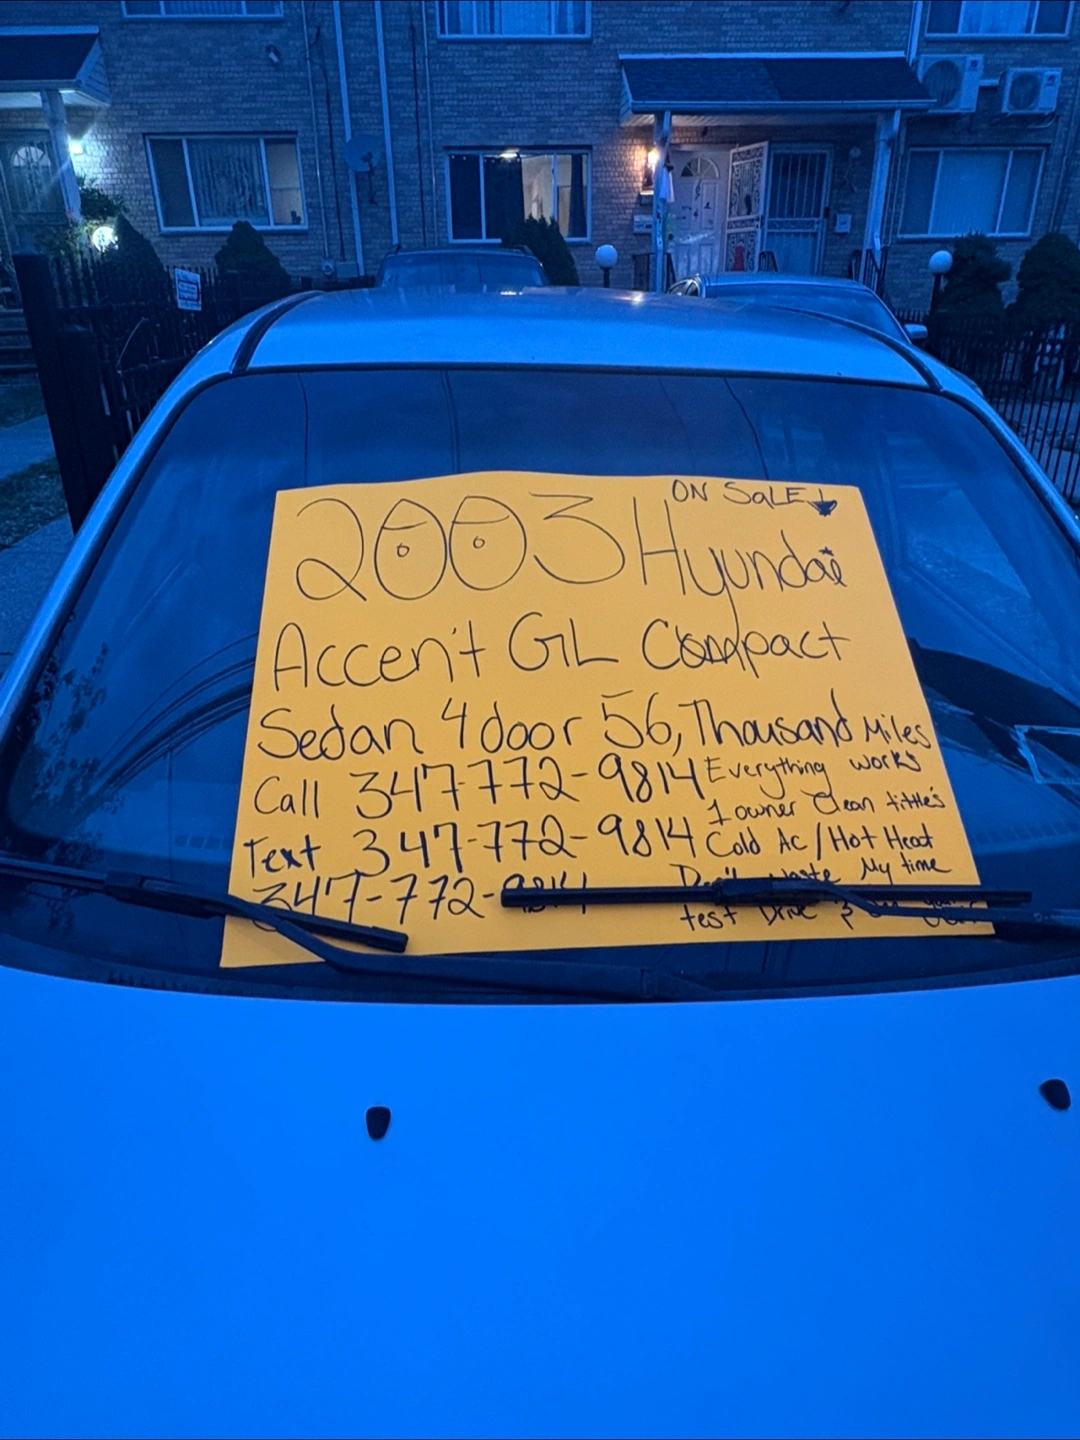 ON SALE
2003 Hyundai
Accen't GL Compact
Sedan 4 door 56, Thousand Miles
Call 347-772-9814 Everything works
1 owner Clean tittle's
Text 347-772-9814 Cold AC / Hot Heat
347-772-9814 Don't waste My time
test Drive &